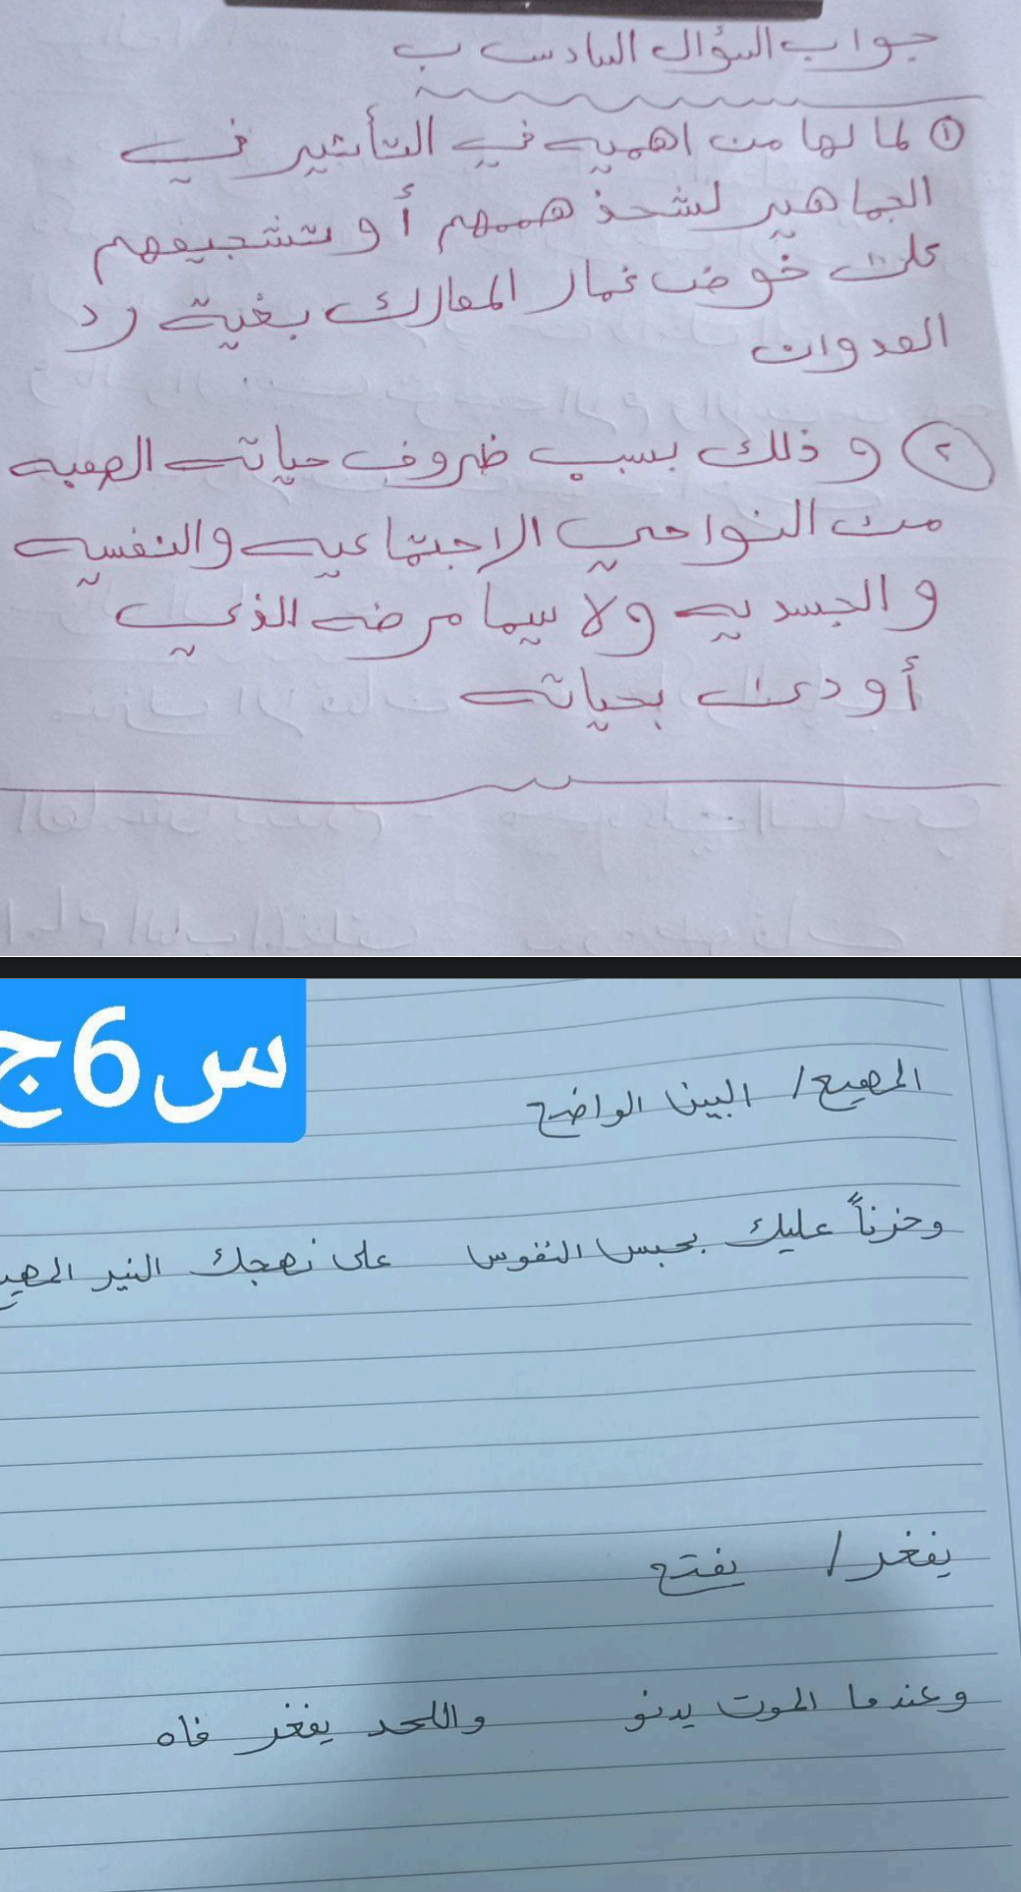 جواب السؤال السادس ب
① لما لها من اهميه في التأثير في
الجماهير لشحذ هممهم أو تشجيعهم
على خوض غمار المعارك بغية رد
العدوان
② وذلك بسبب ظروف حياته الصعبه
من النواحي الاجتماعيه والنفسيه
والجسديه ولا سيما مرضه الذي
أودى بحياته
س6ج
المهيع / البين الواضح
وحزناً عليك بحبس النفوس على نهجك النير المهيع
يفغر / يفتح
وعندما الموت يدنو واللحد يفغر فاه